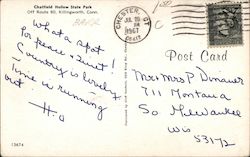 Chatfield Hollow State Park
Off Route 80, Killingworth, Conn.
CHESTER, CT
JUL 20
1967
What a spot
for peace & quiet!
Country is lovely!
Time is running
out!
H.O
Post Card
Mr & Mrs P
711 Montana
So Milwaukee
Wis
53172
13674